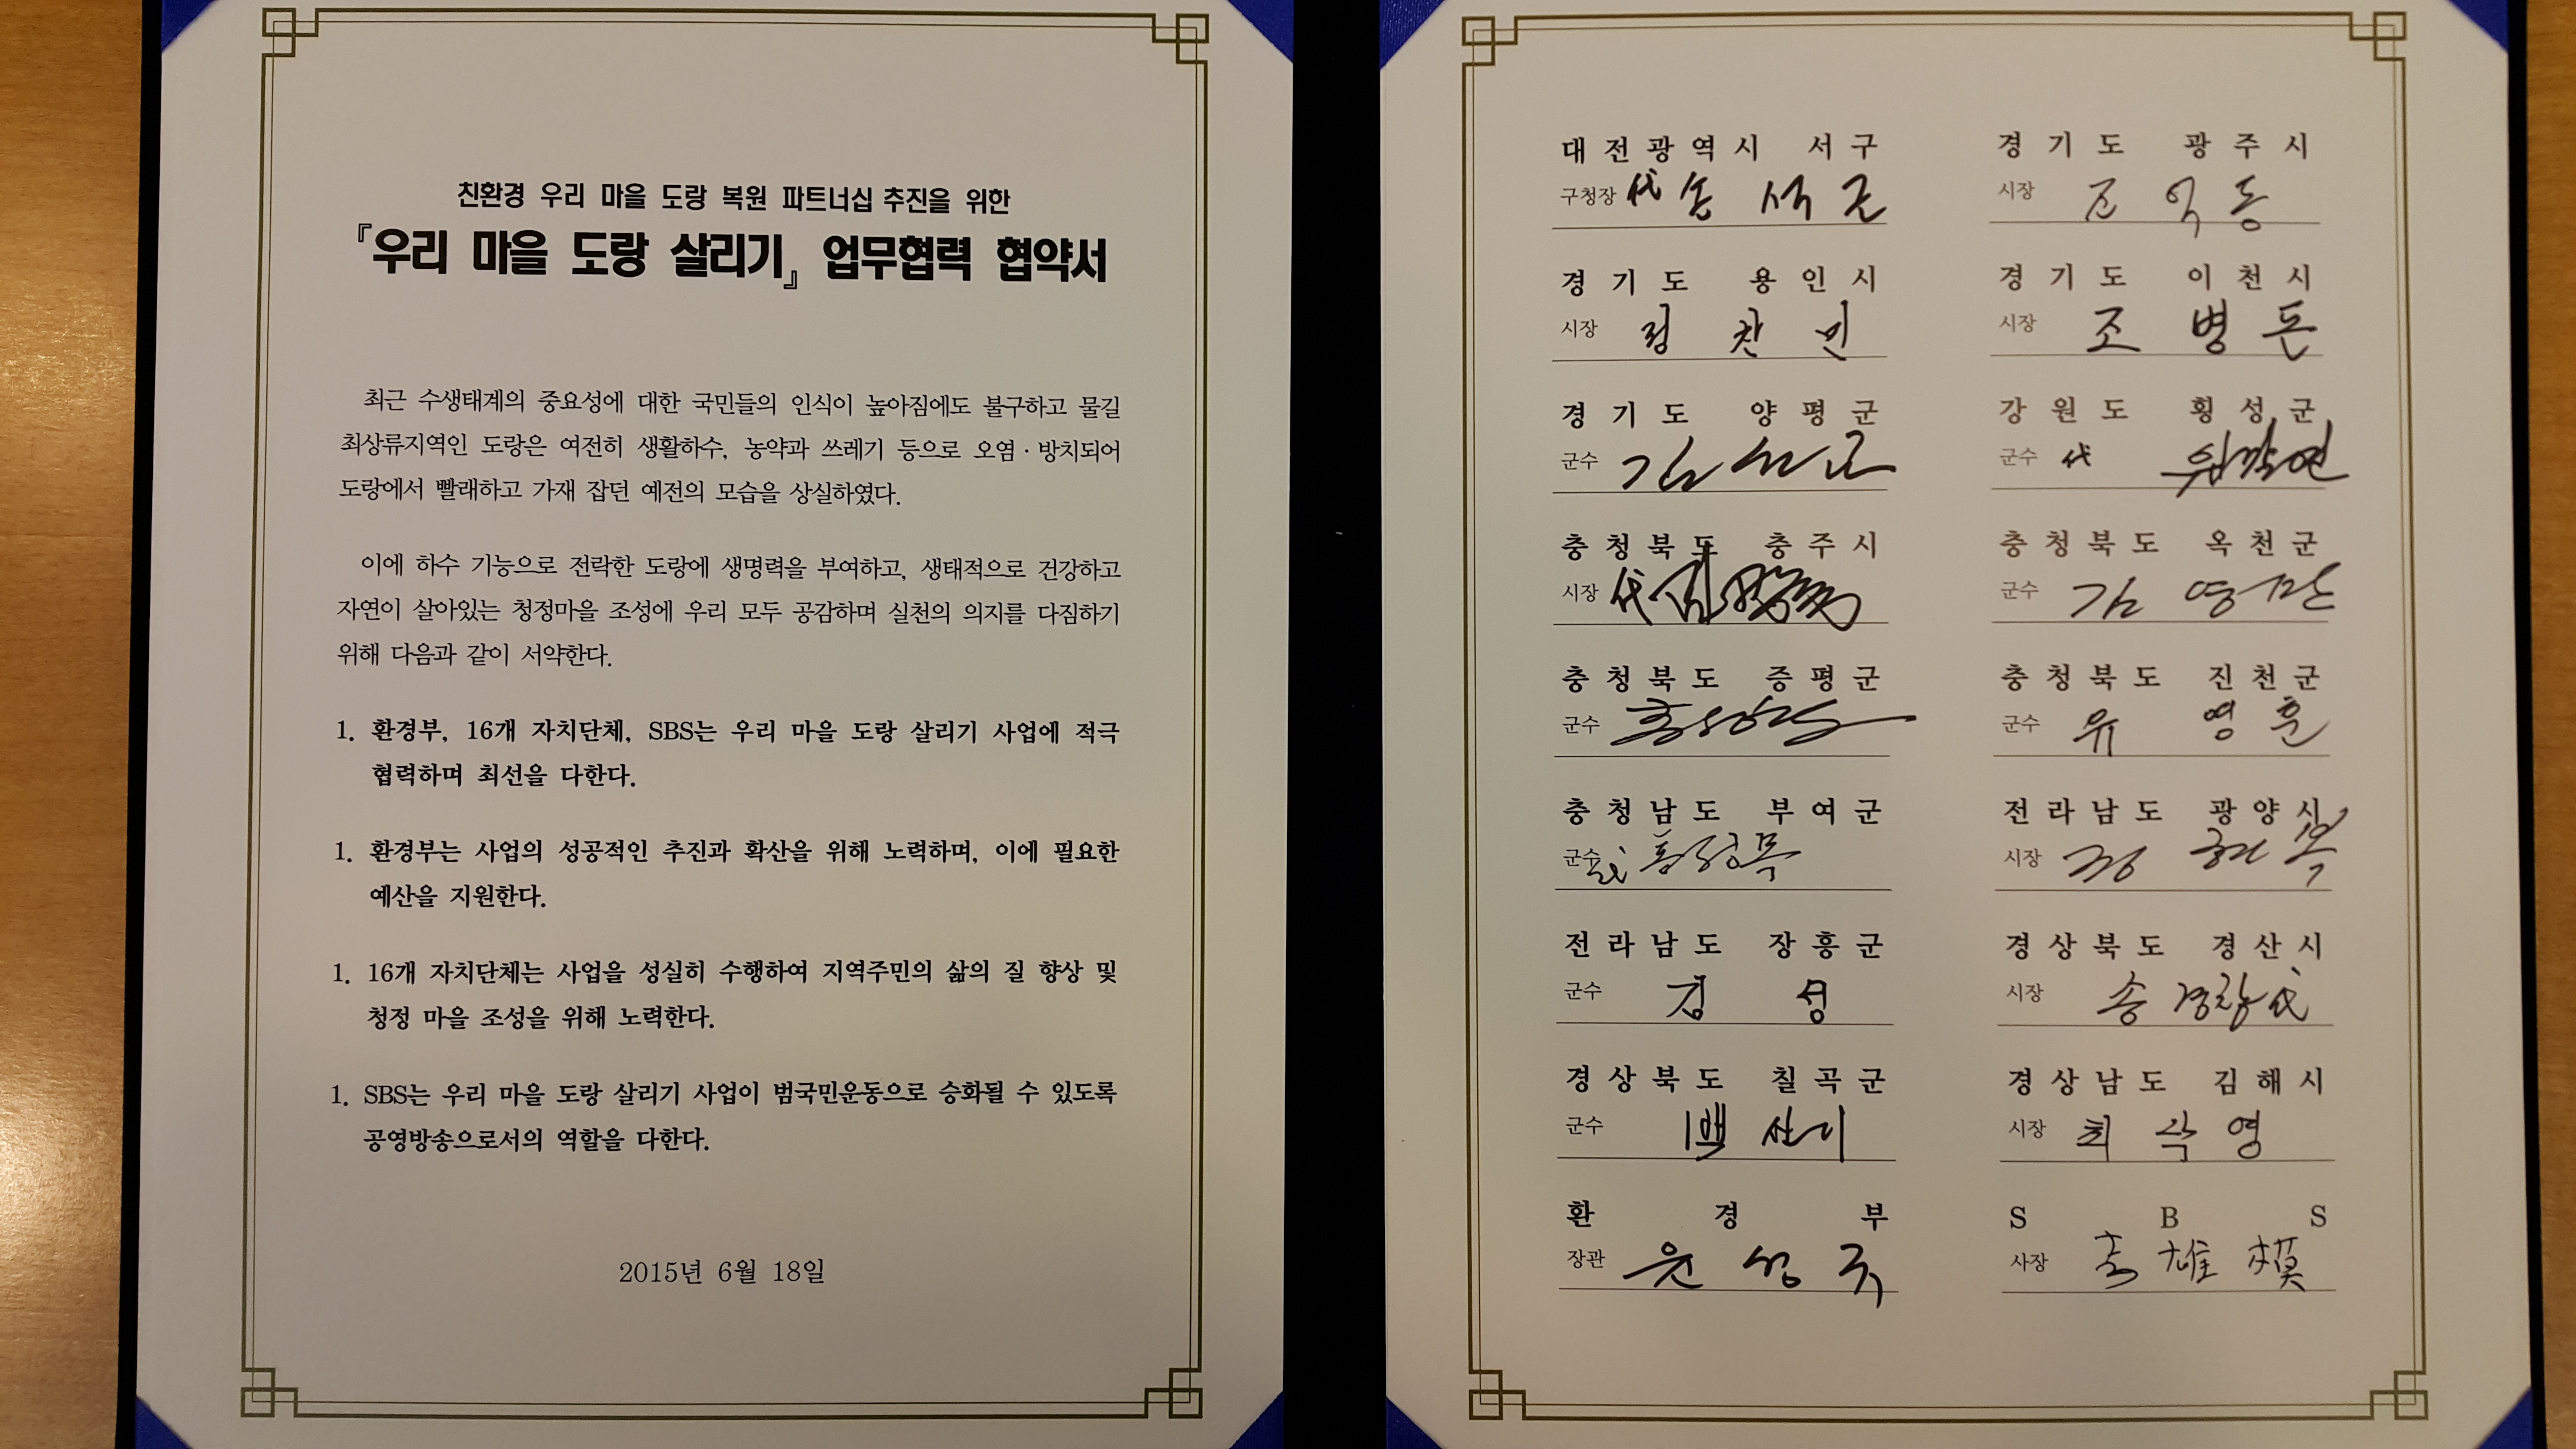 친환경 우리 마을 도랑 복원 파트너십 추진을 위한
『우리 마을 도랑 살리기』 업무협력 협약서
최근 수생태계의 중요성에 대한 국민들의 인식이 높아짐에도 불구하고 물길
최상류지역인 도랑은 여전히 생활하수, 농약과 쓰레기 등으로 오염·방치되어
도랑에서 빨래하고 가재 잡던 예전의 모습을 상실하였다.
이에 하수 기능으로 전락한 도랑에 생명력을 부여하고, 생태적으로 건강하고
자연이 살아있는 청정마을 조성에 우리 모두 공감하며 실천의 의지를 다짐하기
위해 다음과 같이 서약한다.
1. 환경부, 16개 자치단체, SBS는 우리 마을 도랑 살리기 사업에 적극
협력하며 최선을 다한다.
1. 환경부는 사업의 성공적인 추진과 확산을 위해 노력하며, 이에 필요한
예산을 지원한다.
1. 16개 자치단체는 사업을 성실히 수행하여 지역주민의 삶의 질 향상 및
청정 마을 조성을 위해 노력한다.
1. SBS는 우리 마을 도랑 살리기 사업이 범국민운동으로 승화될 수 있도록
공영방송으로서의 역할을 다한다.
2015년 6월 18일
대전광역시 서구
구청장 代
경기도 광주시
시장 조억동
경기도 용인시
시장 정찬민
경기도 이천시
시장 조병돈
경기도 양평군
군수 김선교
강원도 횡성군
군수 代
충청북도 충주시
시장 代
충청북도 옥천군
군수 김영만
충청북도 증평군
군수 홍성열
충청북도 진천군
군수 유영훈
충청남도 부여군
군수
전라남도 광양시
시장 정현복
전라남도 장흥군
군수 김성
경상북도 경산시
시장 송경창 代
경상북도 칠곡군
군수
경상남도 김해시
시장
환경부
장관 윤성규
SBS
사장 李雄模